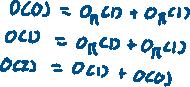 O(0) = O_R(1) + O_R(1)
O(1) = O_R(1) + O_R(1)
O(2) = O(1) + O(0)